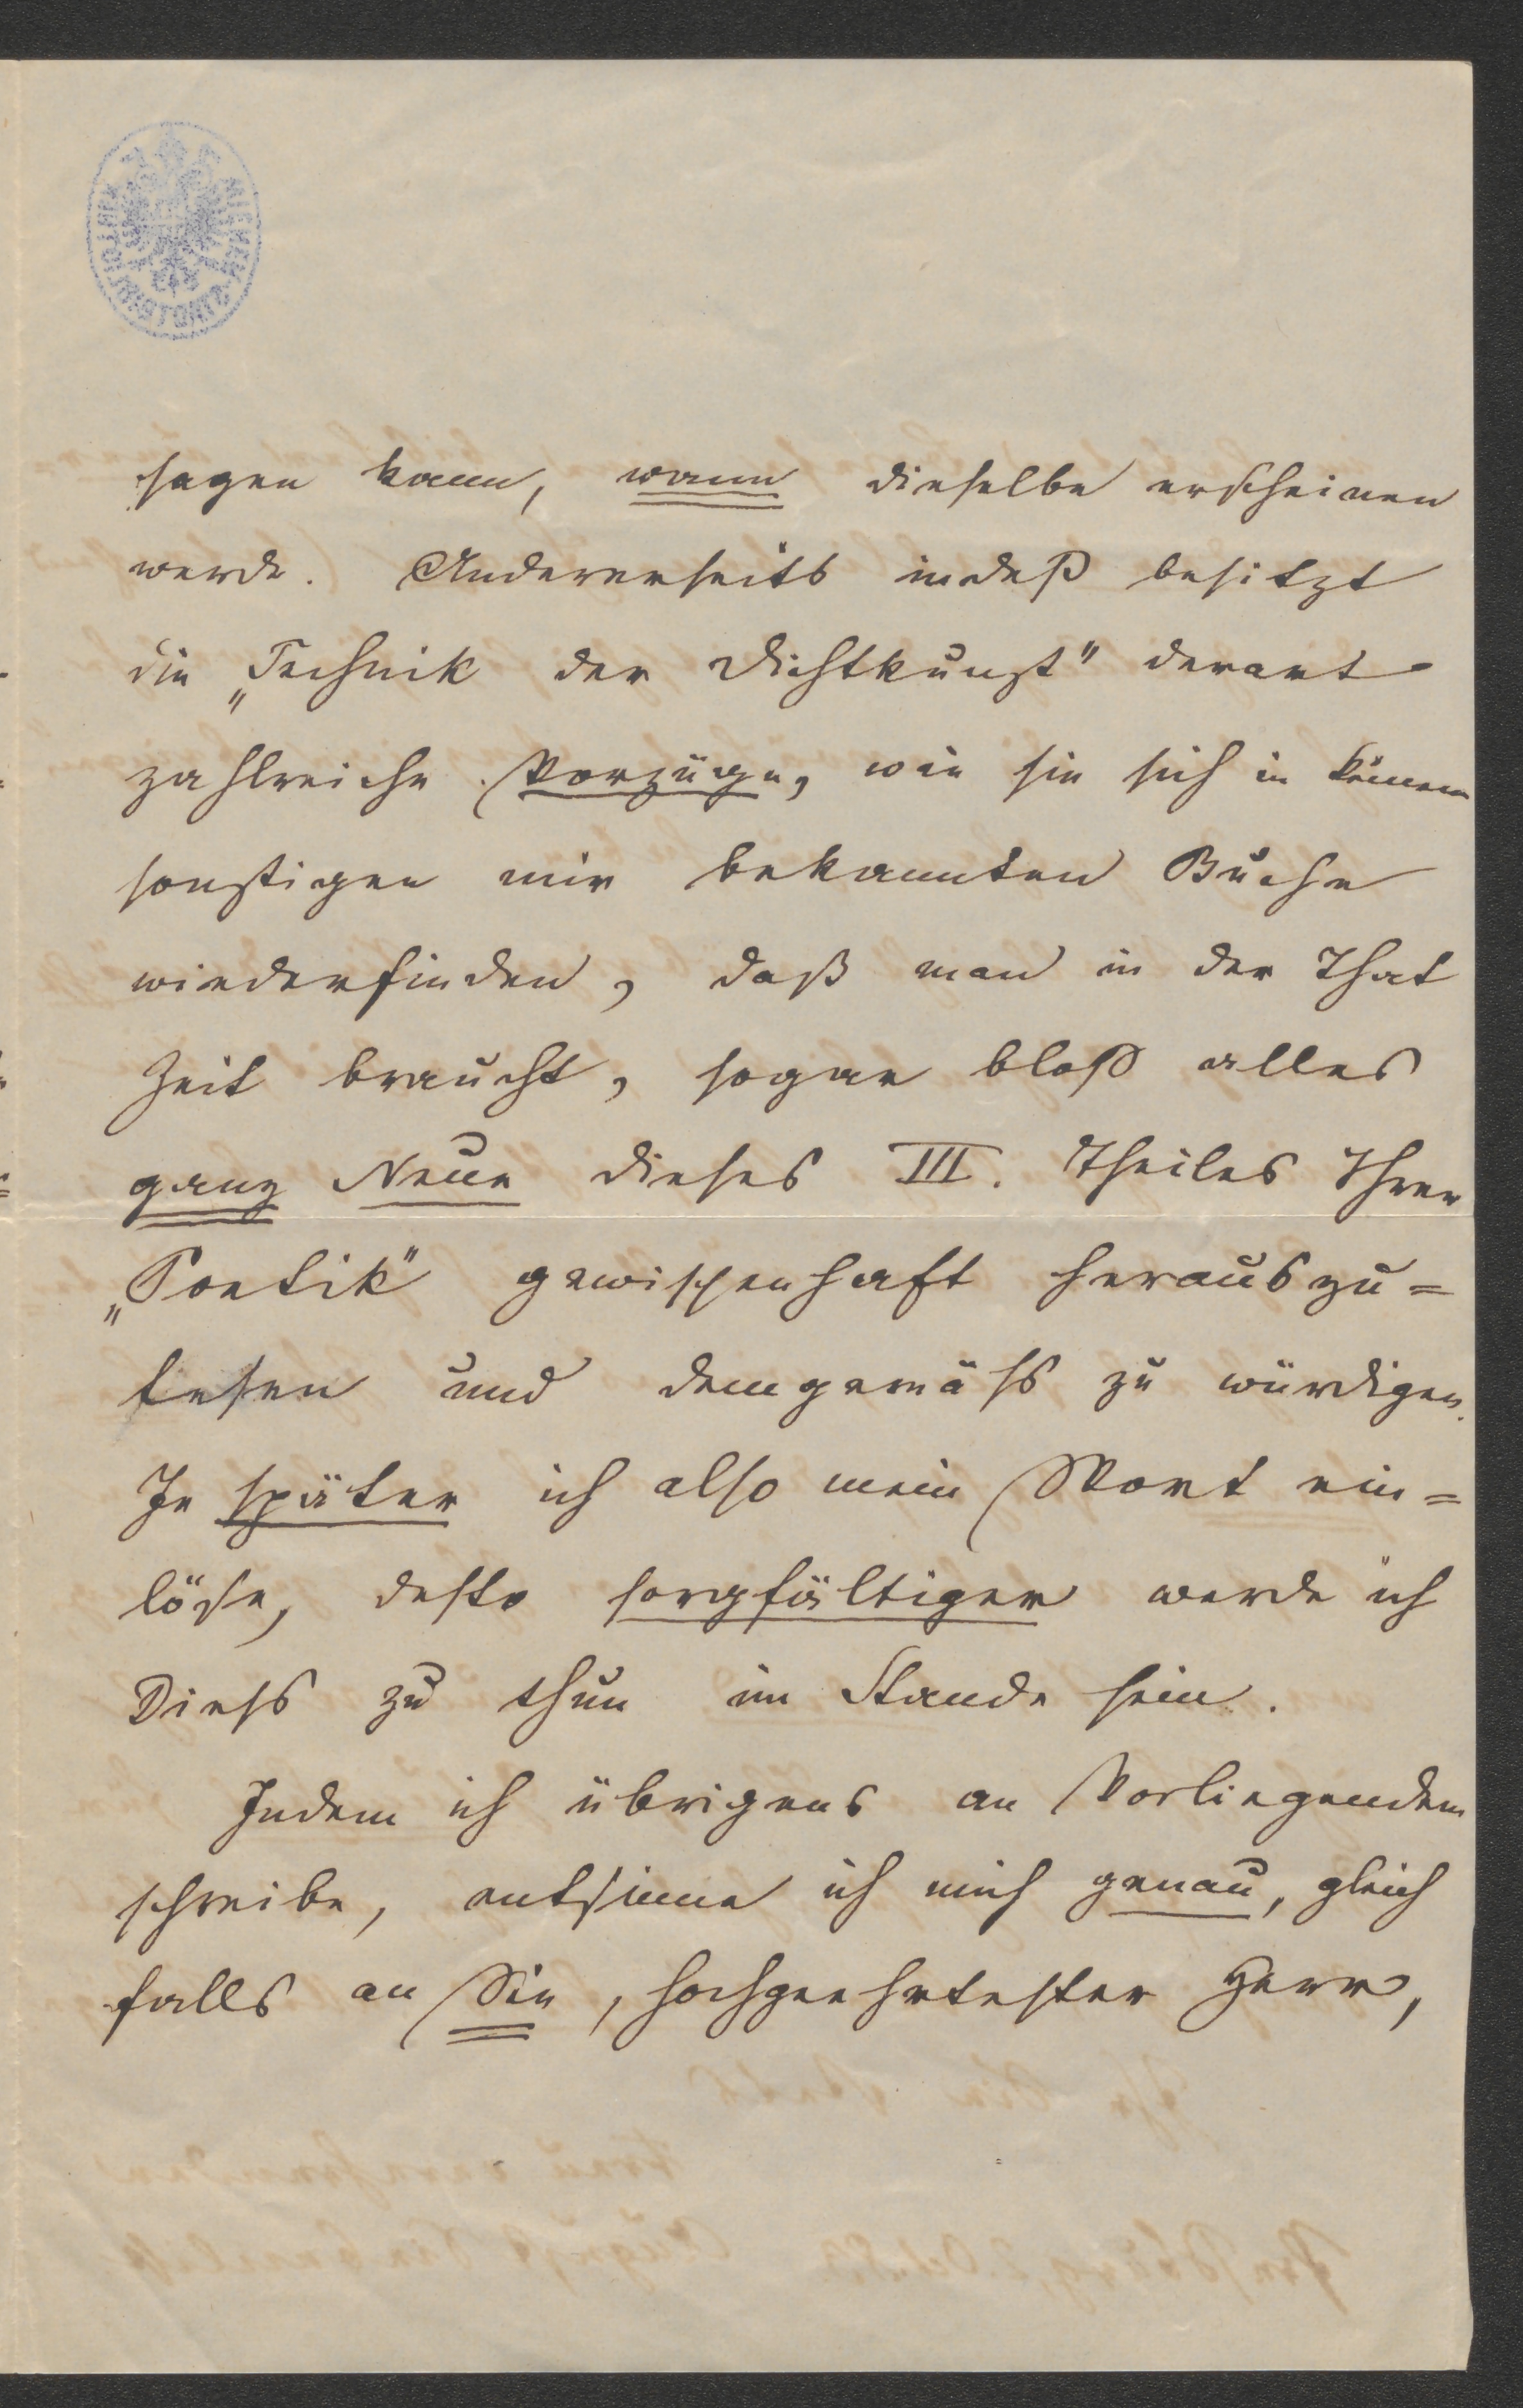 sagen kann, wann dieselbe erscheinen
werde. Andererseits indeß besitzt
die „Technik der Dichtkunst" derart
zahlreiche Vorzüge, wie sie sich in keinem
sonstigen mir bekannten Buche
wiederfinden, daß man in der That
Zeit braucht, sogar bloß alles
ganz Neue dieses III. Theiles Ihrer
„Poetik" gewissenhaft herauszu=
lesen und demgemäß zu würdigen.
Je später ich also mein Wort ein=
löse, desto sorgfältiger werde ich
Dieß zu thun im Stande sein.
Indem ich übrigens an Vorliegendem
schreibe, entsinne ich mich genau, gleich
falls an Sie, hochgeehrtester Herr,